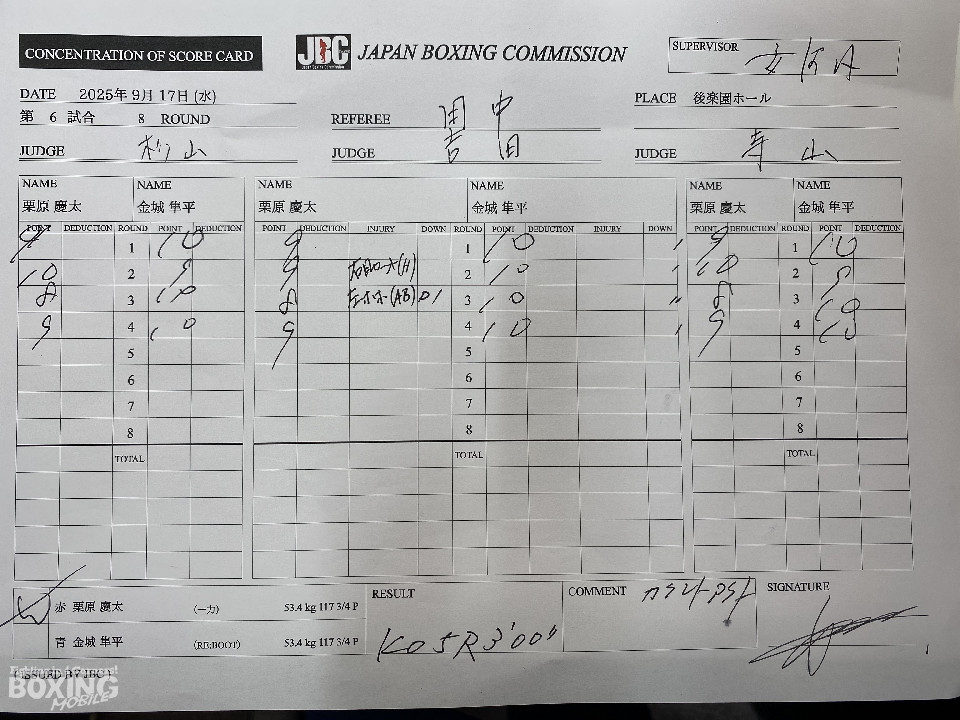 CONCENTRATION OF SCORE CARD
JBC JAPAN BOXING COMMISSION
SUPERVISOR
DATE 2025年 9月 17日 (水)
PLACE 後楽園ホール
第 6 試合 8 ROUND
REFEREE 田中
JUDGE 杉山
JUDGE 吉田
JUDGE 寺山
NAME NAME NAME NAME NAME NAME
栗原 慶太 金城 隼平 栗原 慶太 金城 隼平 栗原 慶太 金城 隼平
POINT DEDUCTION ROUND POINT DEDUCTION POINT DEDUCTION INJURY DOWN ROUND POINT DEDUCTION INJURY DOWN POINT DEDUCTION ROUND POINT DEDUCTION
9 1 10 9 1 10 9 1 10
10 2 9 9 (H) 2 10 10 2 9
8 3 10 8 (AB) 01 3 10 8 3 10
9 4 10 9 4 10 9 4 10
5 5 5
6 6 6
7 7 7
8 8 8
TOTAL TOTAL TOTAL
赤 栗原 慶太 (一力) 53.4 kg 117 3/4 P
青 金城 隼平 (RE:BOOT) 53.4 kg 117 3/4 P
RESULT
KO 5R 3'00"
COMMENT
SIGNATURE
(ISSUED BY JBC)
BOXING
MOBILE